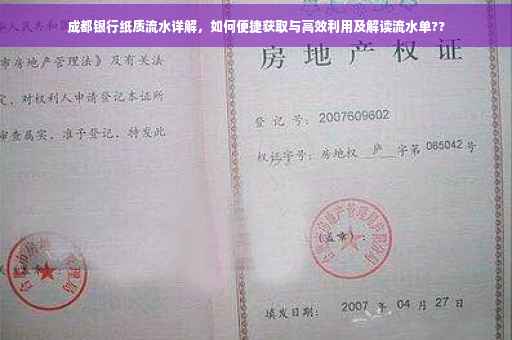 成都银行纸质流水详解，如何便捷获取与高效利用及解读流水单??
市房地产管理法》及有关法
定，对权利人申请登记本证所
审查属实，准予登记，特发此
房地产权证
登记号：2007609602
权证字号：房地权 庐 字第 085042 号
(盖章)：
填发日期： 2007 年 04 月 27 日